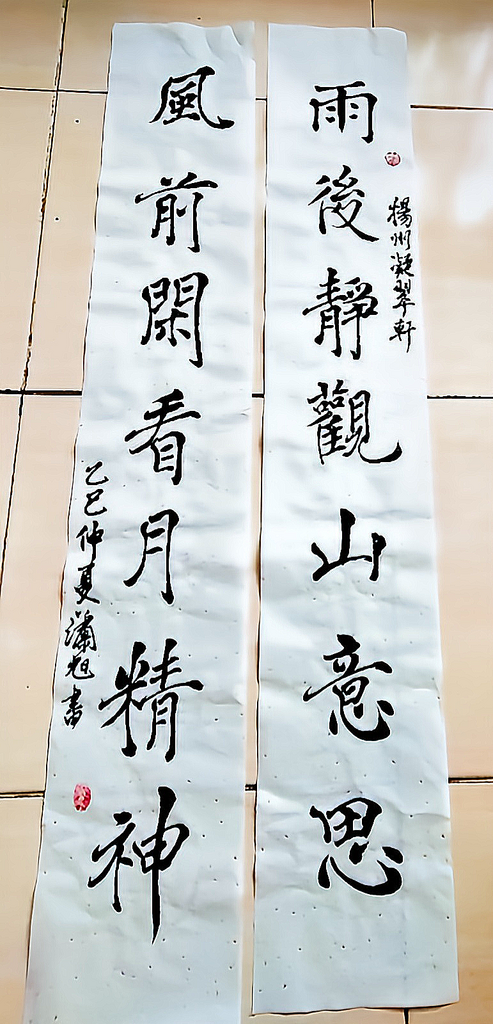 雨後靜觀山意思
揚州凝翠軒
風前閑看月精神
乙巳仲夏瀟旭書